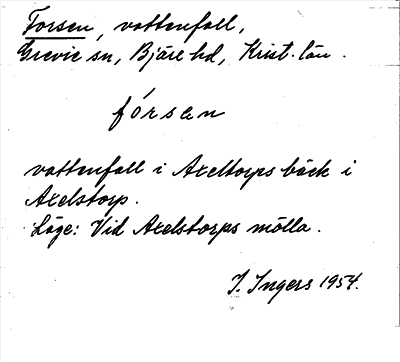 Forsen, vattenfall,
Grevie sn, Bjäre hd, Krist. län.
fórsen
vattenfall i Axeltorps bäck i
Axelstorp.
Läge: Vid Axelstorps mölla.
I. Ingers 1954.